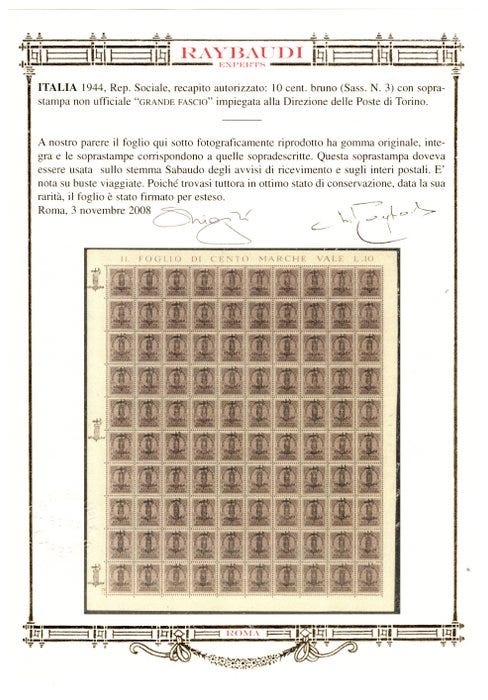 RAYBAUDI
EXPERTS
ITALIA 1944, Rep. Sociale, recapito autorizzato: 10 cent. bruno (Sass. N. 3) con sopra-
stampa non ufficiale “GRANDE FASCIO” impiegata alla Direzione delle Poste di Torino.
A nostro parere il foglio qui sotto fotograficamente riprodotto ha gomma originale, inte-
gra e le soprastampe corrispondono a quelle sopradescritte. Questa soprastampa doveva
essere usata sullo stemma Sabaudo degli avvisi di ricevimento e sugli interi postali. E’
nota su buste viaggiate. Poiché trovasi tuttora in ottimo stato di conservazione, data la sua
rarità, il foglio è stato firmato per esteso.
Roma, 3 novembre 2008
IL FOGLIO DI CENTO MARCHE VALE L.10
ROMA